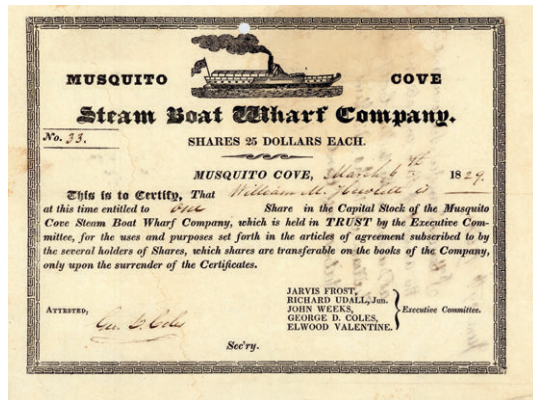 MUSQUITO COVE
Steam Boat Wharf Company.
No. 33.
SHARES 25 DOLLARS EACH.
MUSQUITO COVE, March 6th 1829.
This is to Certify, That William M. Hewlett is
at this time entitled to one Share in the Capital Stock of the Musquito
Cove Steam Boat Wharf Company, which is held in TRUST by the Executive Com-
mittee, for the uses and purposes set forth in the articles of agreement subscribed to by
the several holders of Shares, which shares are transferable on the books of the Company,
only upon the surrender of the Certificates.
JARVIS FROST,
RICHARD UDALL, Jun.
JOHN WEEKS,
GEORGE D. COLES,
ELWOOD VALENTINE.
Executive Committee.
ATTESTED,
Geo. D. Coles
Sec'ry.